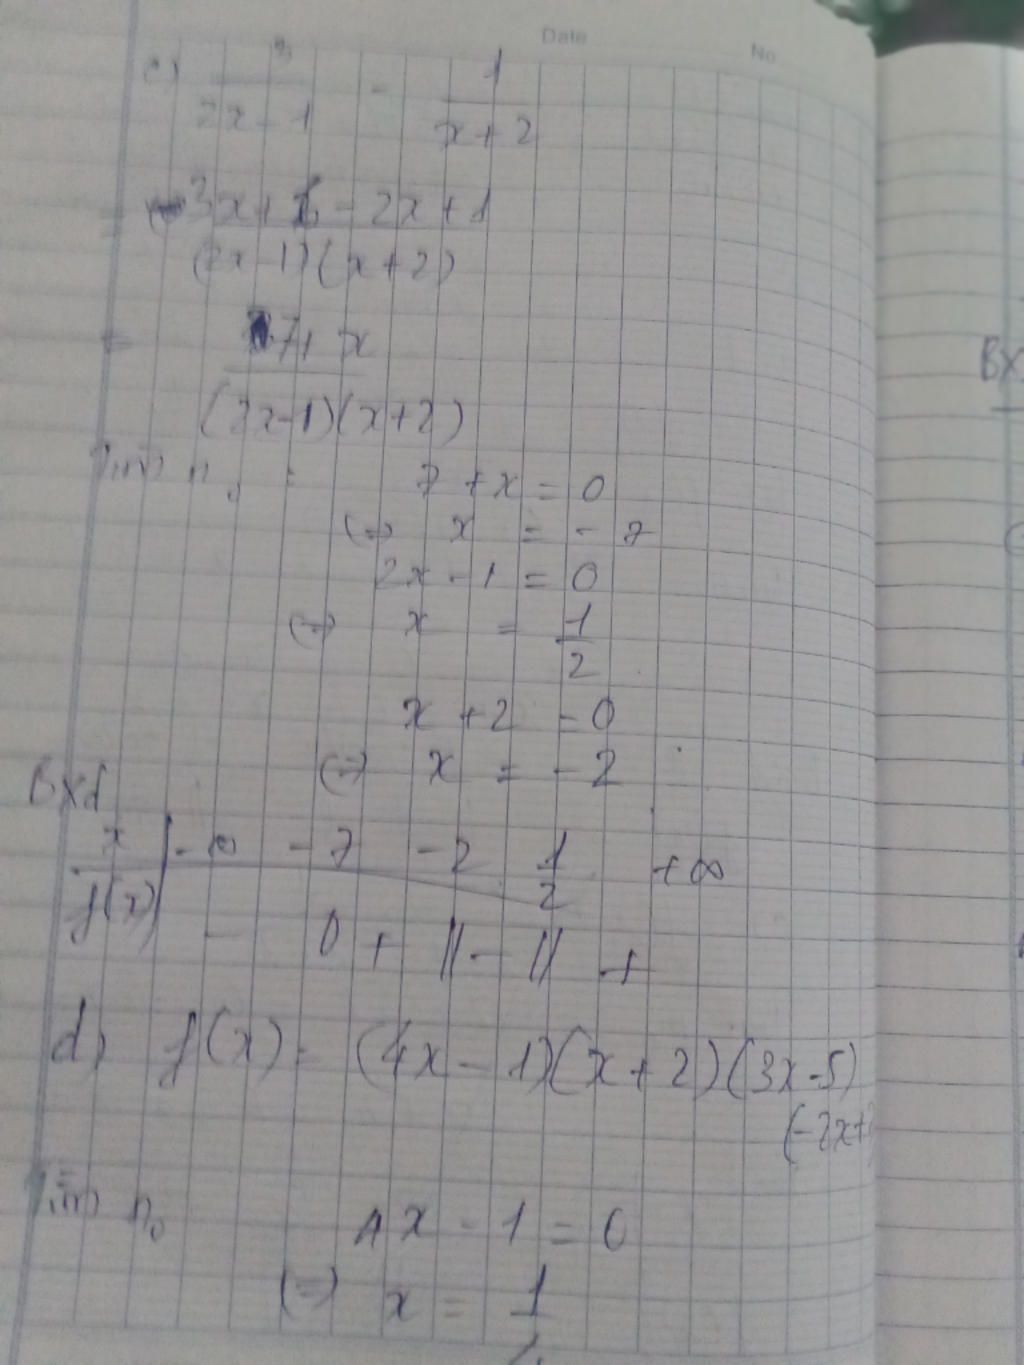 Date No
c) 3/(2x - 1) - 1/(x + 2)
= (3x + 6 - 2x + 1)/((2x - 1)(x + 2))
= (7 + x)/((2x - 1)(x + 2))
Tìm n₀ : 7 + x = 0
(=) x = - 7
2x - 1 = 0
(=) x = 1/2
x + 2 = 0
(=) x = - 2
Bxd
x | - ∞ - 7 - 2 1/2 + ∞
f(x) | - 0 + || - || +
d) f(x) = (4x - 1)(x + 2)(3x - 5)
(-2x +
Tìm n₀ 4x - 1 = 0
(=) x = 1/4
BX